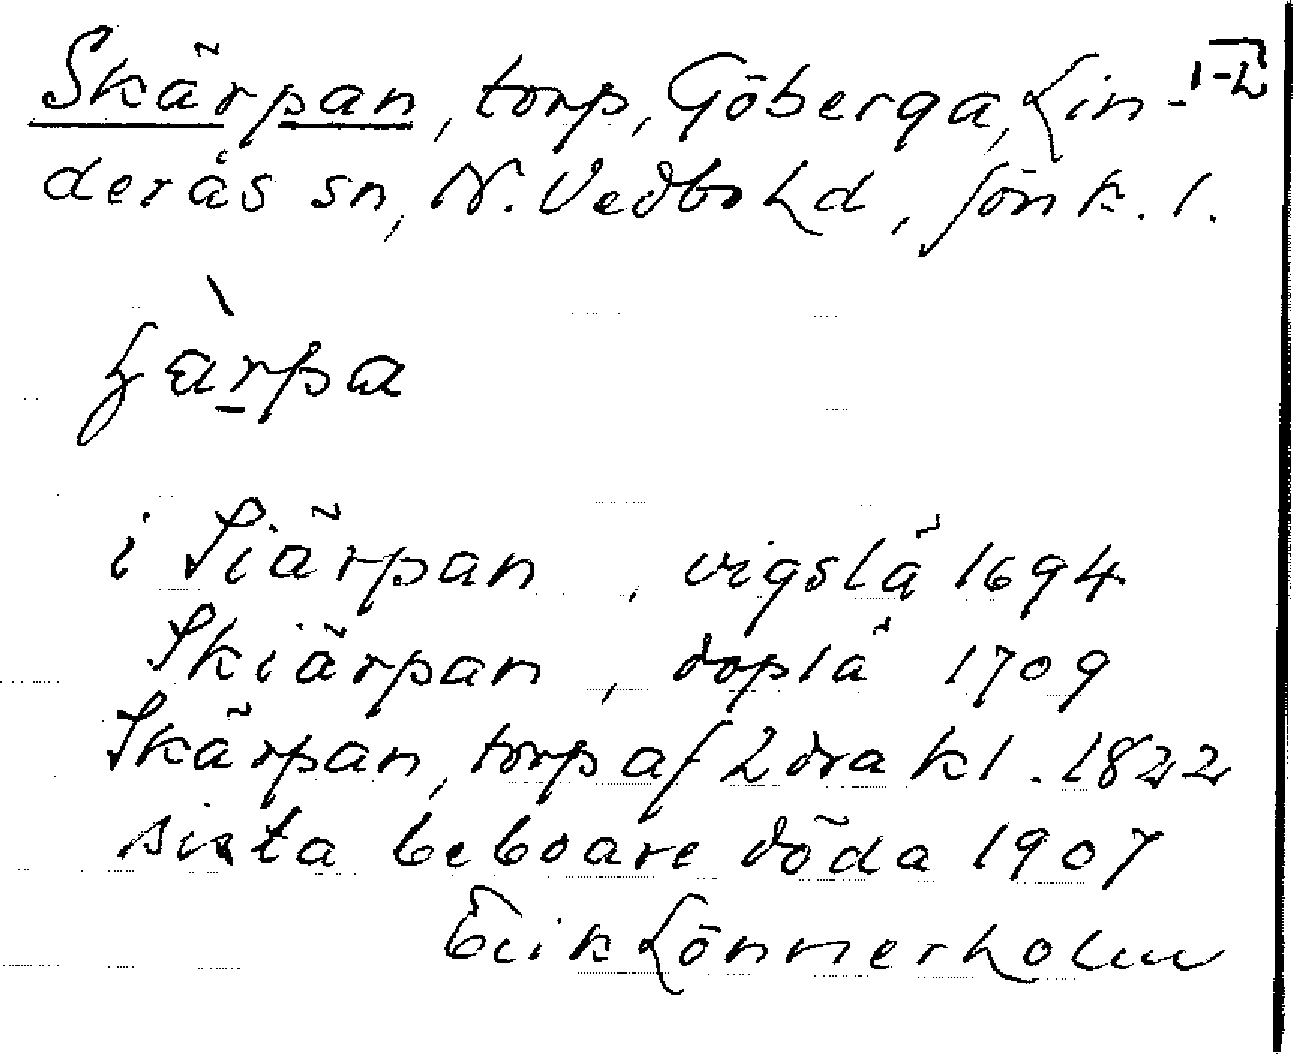 Skärpan, torp, Göberga, Lin-
derås sn, N. Vedbo hd, Jönk. l.
i Siärpan, vigslä 1694
Skiärpan, doplä 1709
Skärpan, torp af 2dra kl. 1822
sista beboare döda 1907
Erik Lönnerholm